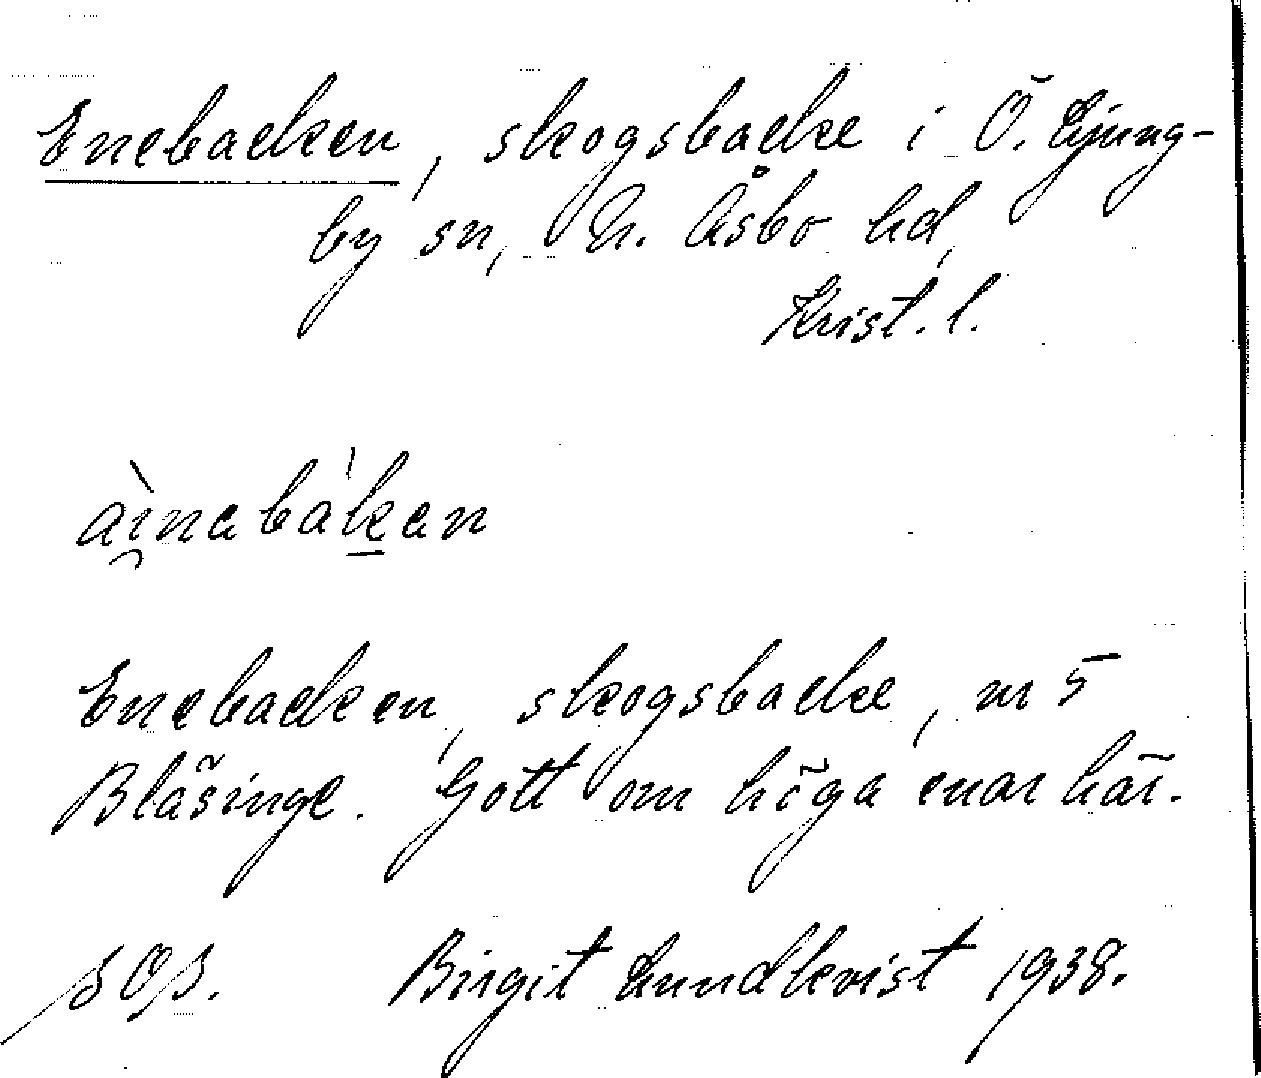 Enebacken, skogsbacke i Ö. Ljung-
by sn, N. Åsbo hd,
Krist. l.
àinabàkan
Enebacken, skogsbacke, nr 5
Bläsinge. Gott om höga enar här.
Birgit Lundkvist 1938.